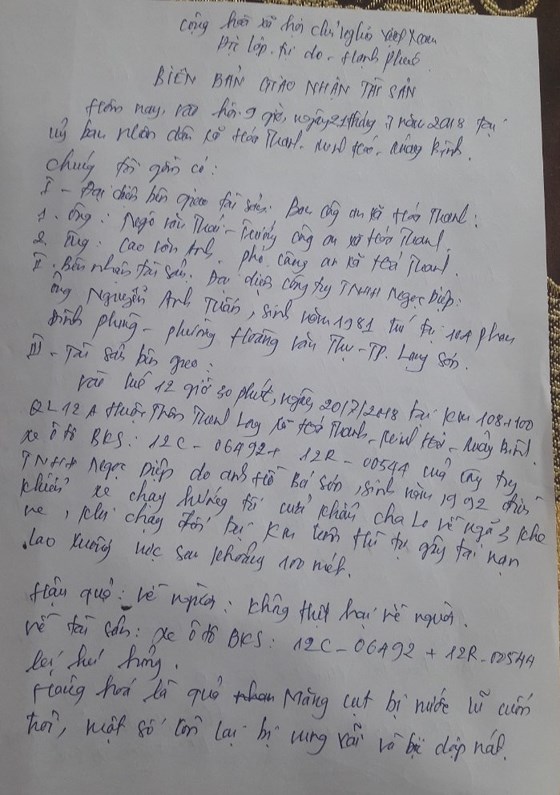 Cộng hoà xã hội chủ nghĩa Việt Nam
Độc lập. Tự do - Hạnh phúc.
BIÊN BẢN GIAO NHẬN TÀI SẢN
Hôm nay, vào hồi 9 giờ, ngày 21 tháng 7 năm 2018 tại
Uỷ ban nhân dân xã Hoá Thanh - Minh Hoá - Quảng Bình.
Chúng tôi gồm có:
I - Đại diện bên giao tài sản: Ban công an xã Hoá Thanh:
1. Ông: Ngô văn Thái - Trưởng công an xã Hoá Thanh.
2. Ông: Cao văn Anh. phó. công an xã Hoá Thanh.
II. Bên nhận tài sản: Đại diện công ty TNHH Ngọc Diệp:
ông Nguyễn Anh Tuấn, sinh năm 1981 trú tại 10A phan
Đình phùng - phường Hoàng văn Thụ - TP. Lạng Sơn.
III - Tài sản bên giao:
vào lúc 12 giờ 30 phút, ngày 20/7/2018 tại km 108+100
QL12A thuộc Thôn Thanh Long xã Hoá Thanh - Minh Hoá - Quảng Bình.
xe ô tô BKS: 12C - 06492 + 12R - 00544 của công ty
TNHH Ngọc Diệp do anh Hồ Bá Sơn, sinh năm 1992 điều
khiển xe chạy hướng từ cửa khẩu cha Lo về ngã 3 khe
ve, khi chạy đến tại km trên thì tự gây tai nạn
lao xuống vực sâu khoảng 100 mét.
Hậu quả: về người: không thiệt hại về người.
về tài sản: xe ô tô BKS: 12C - 06492 + 12R - 00544
bị hư hỏng.
Hàng hoá là quả Măng cụt bị nước lũ cuốn
trôi, một số còn lại bị vung vãi và bị dập nát.